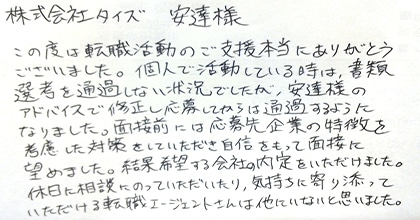 株式会社タイズ 安達様
この度は転職活動のご支援本当にありがとう
ございました。個人で活動している時は、書類
選考を通過しない状況でしたが、安達様の
アドバイスで修正し応募してからは通過するように
なりました。面接前には応募先企業の特徴を
考慮した対策をしていただき自信をもって面接に
望めました。結果希望する会社の内定をいただけました。
休日に相談にのっていただいたり、気持ちに寄り添って
いただける転職エージェントさんは他にいないと思いました。